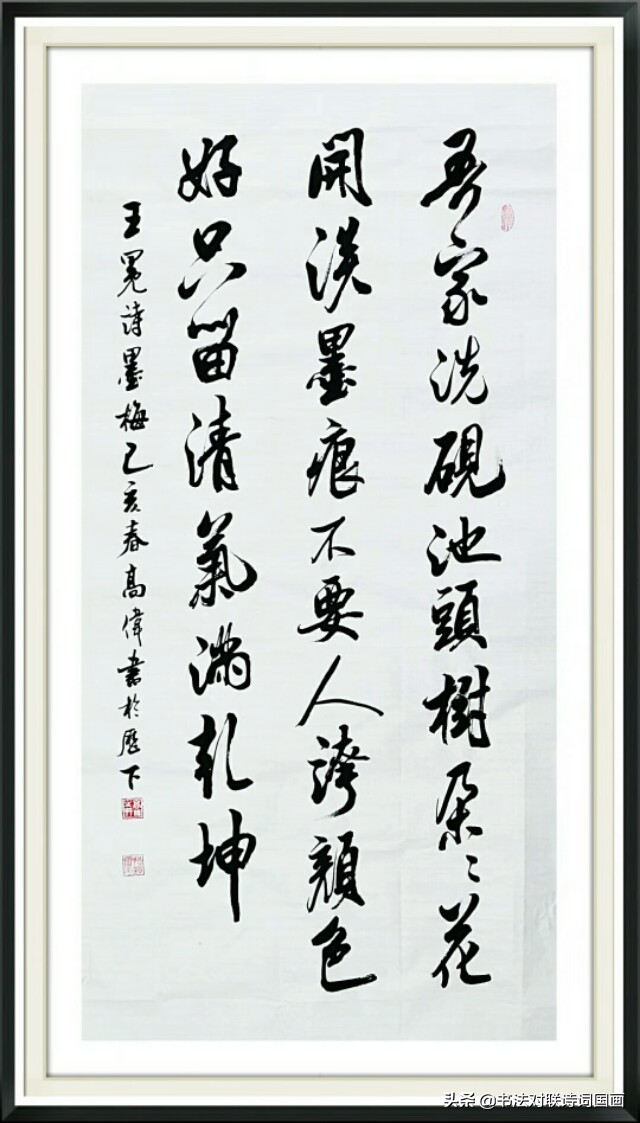 吾家洗硯池頭樹朵〻花
開淡墨痕不要人誇顏色
好只留清氣滿乾坤
王冕詩墨梅己亥春高偉書於歷下
头条 @书法对联诗词国画